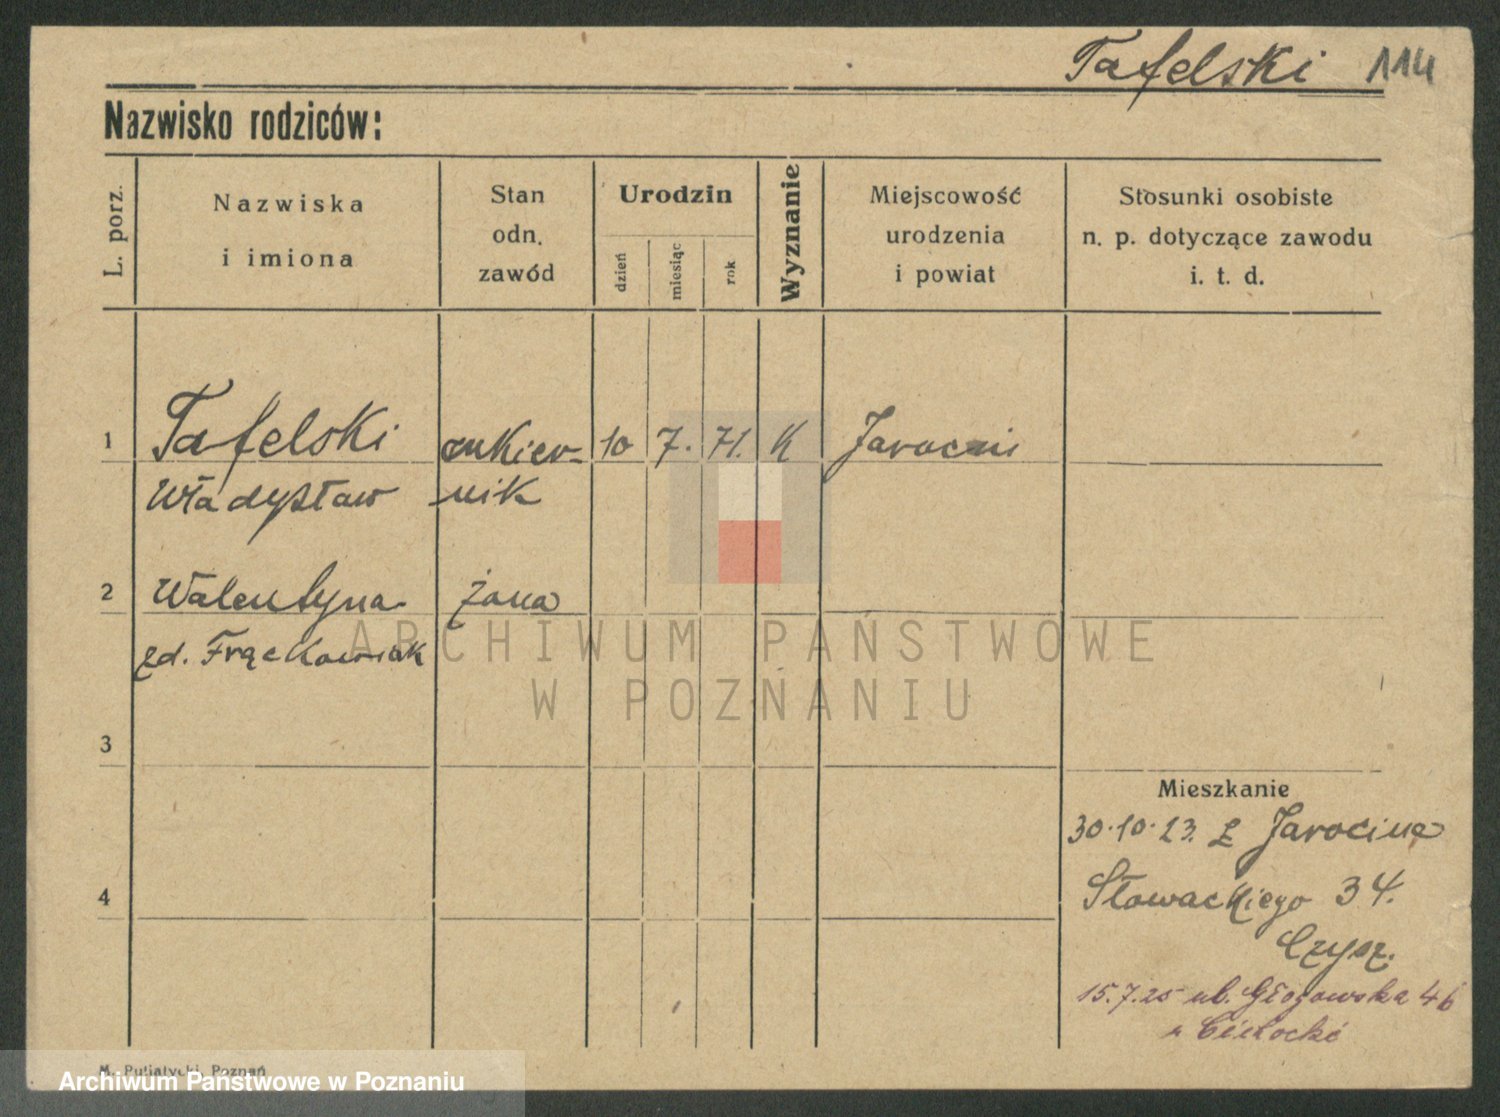 Tafelski 114
Nazwisko rodziców:
L. porz.
Nazwiska
i imiona
Stan
odn.
zawód
Urodzin
dzień
miesiąc
rok
Wyznanie
Miejscowość
urodzenia
i powiat
Stosunki osobiste
n. p. dotyczące zawodu
i. t. d.
1 Tafelski cukier- 10 7. 71. K Jarocin
Władysław nik
2 Walentyna żona
zd. Frąckowiak
ARCHIWUM PAŃSTWOWE
W POZNANIU
3
4
Mieszkanie
30.10.23. z Jarocina
Słowackiego 34.
15.7.25 ul. Głogowska 46
M. Putiatycki, Poznań
Archiwum Państwowe w Poznaniu